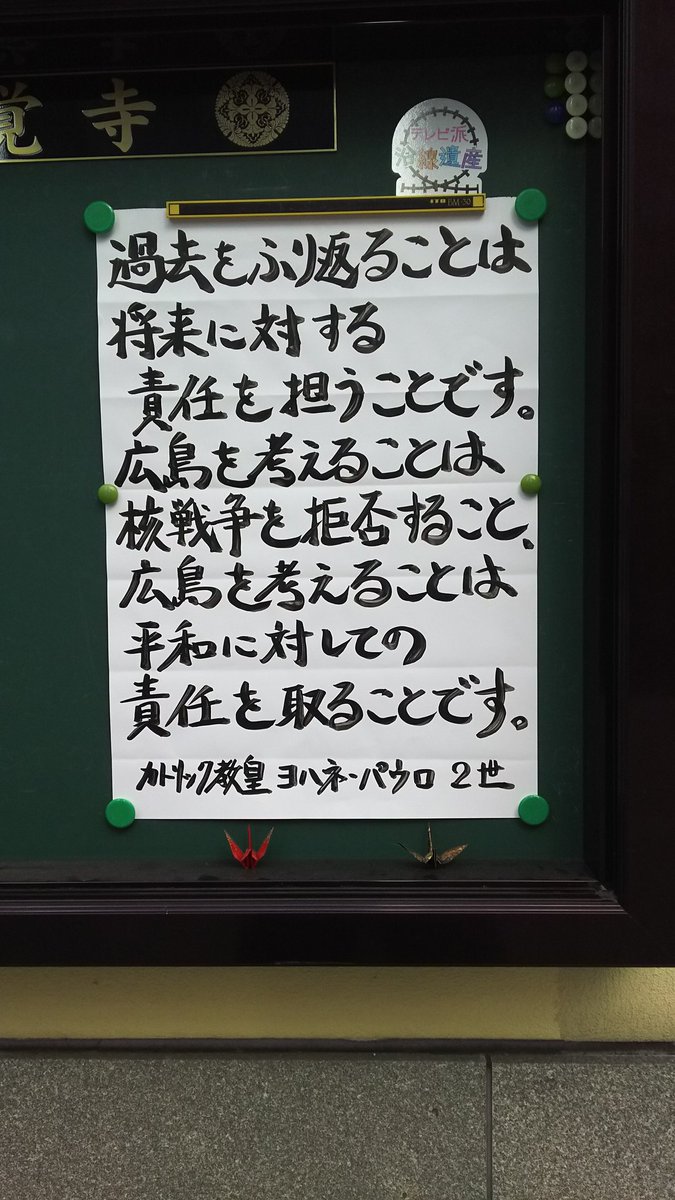 覚寺
テレビ派
沿線遺産
BM-30
過去をふり返ることは
将来に対する
責任を担うことです。
広島を考えることは
核戦争を拒否すること、
広島を考えることは
平和に対しての
責任を取ることです。
カトリック教皇 ヨハネ・パウロ 2世